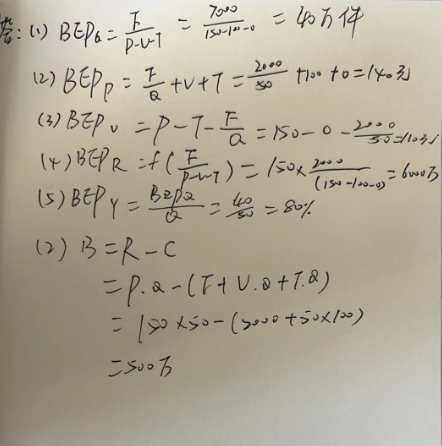 答: (1) BEP_Q = F/(P-V-T) = 7000/(150-100-0) = 40万件
(2) BEP_P = F/Q + V + T = 2000/50 + 100 + 0 = 140元
(3) BEP_V = P - T - F/Q = 150 - 0 - 2000/50 = 110元
(4) BEP_R = P(F/(P-V-T)) = 150 × 2000/(150-100-0) = 6000万
(5) BEP_Y = BEP_Q/Q = 40/50 = 80%
(2) B = R - C
= P.Q - (F + V.Q + T.Q)
= 150 × 50 - (2000 + 50 × 100)
= 500万